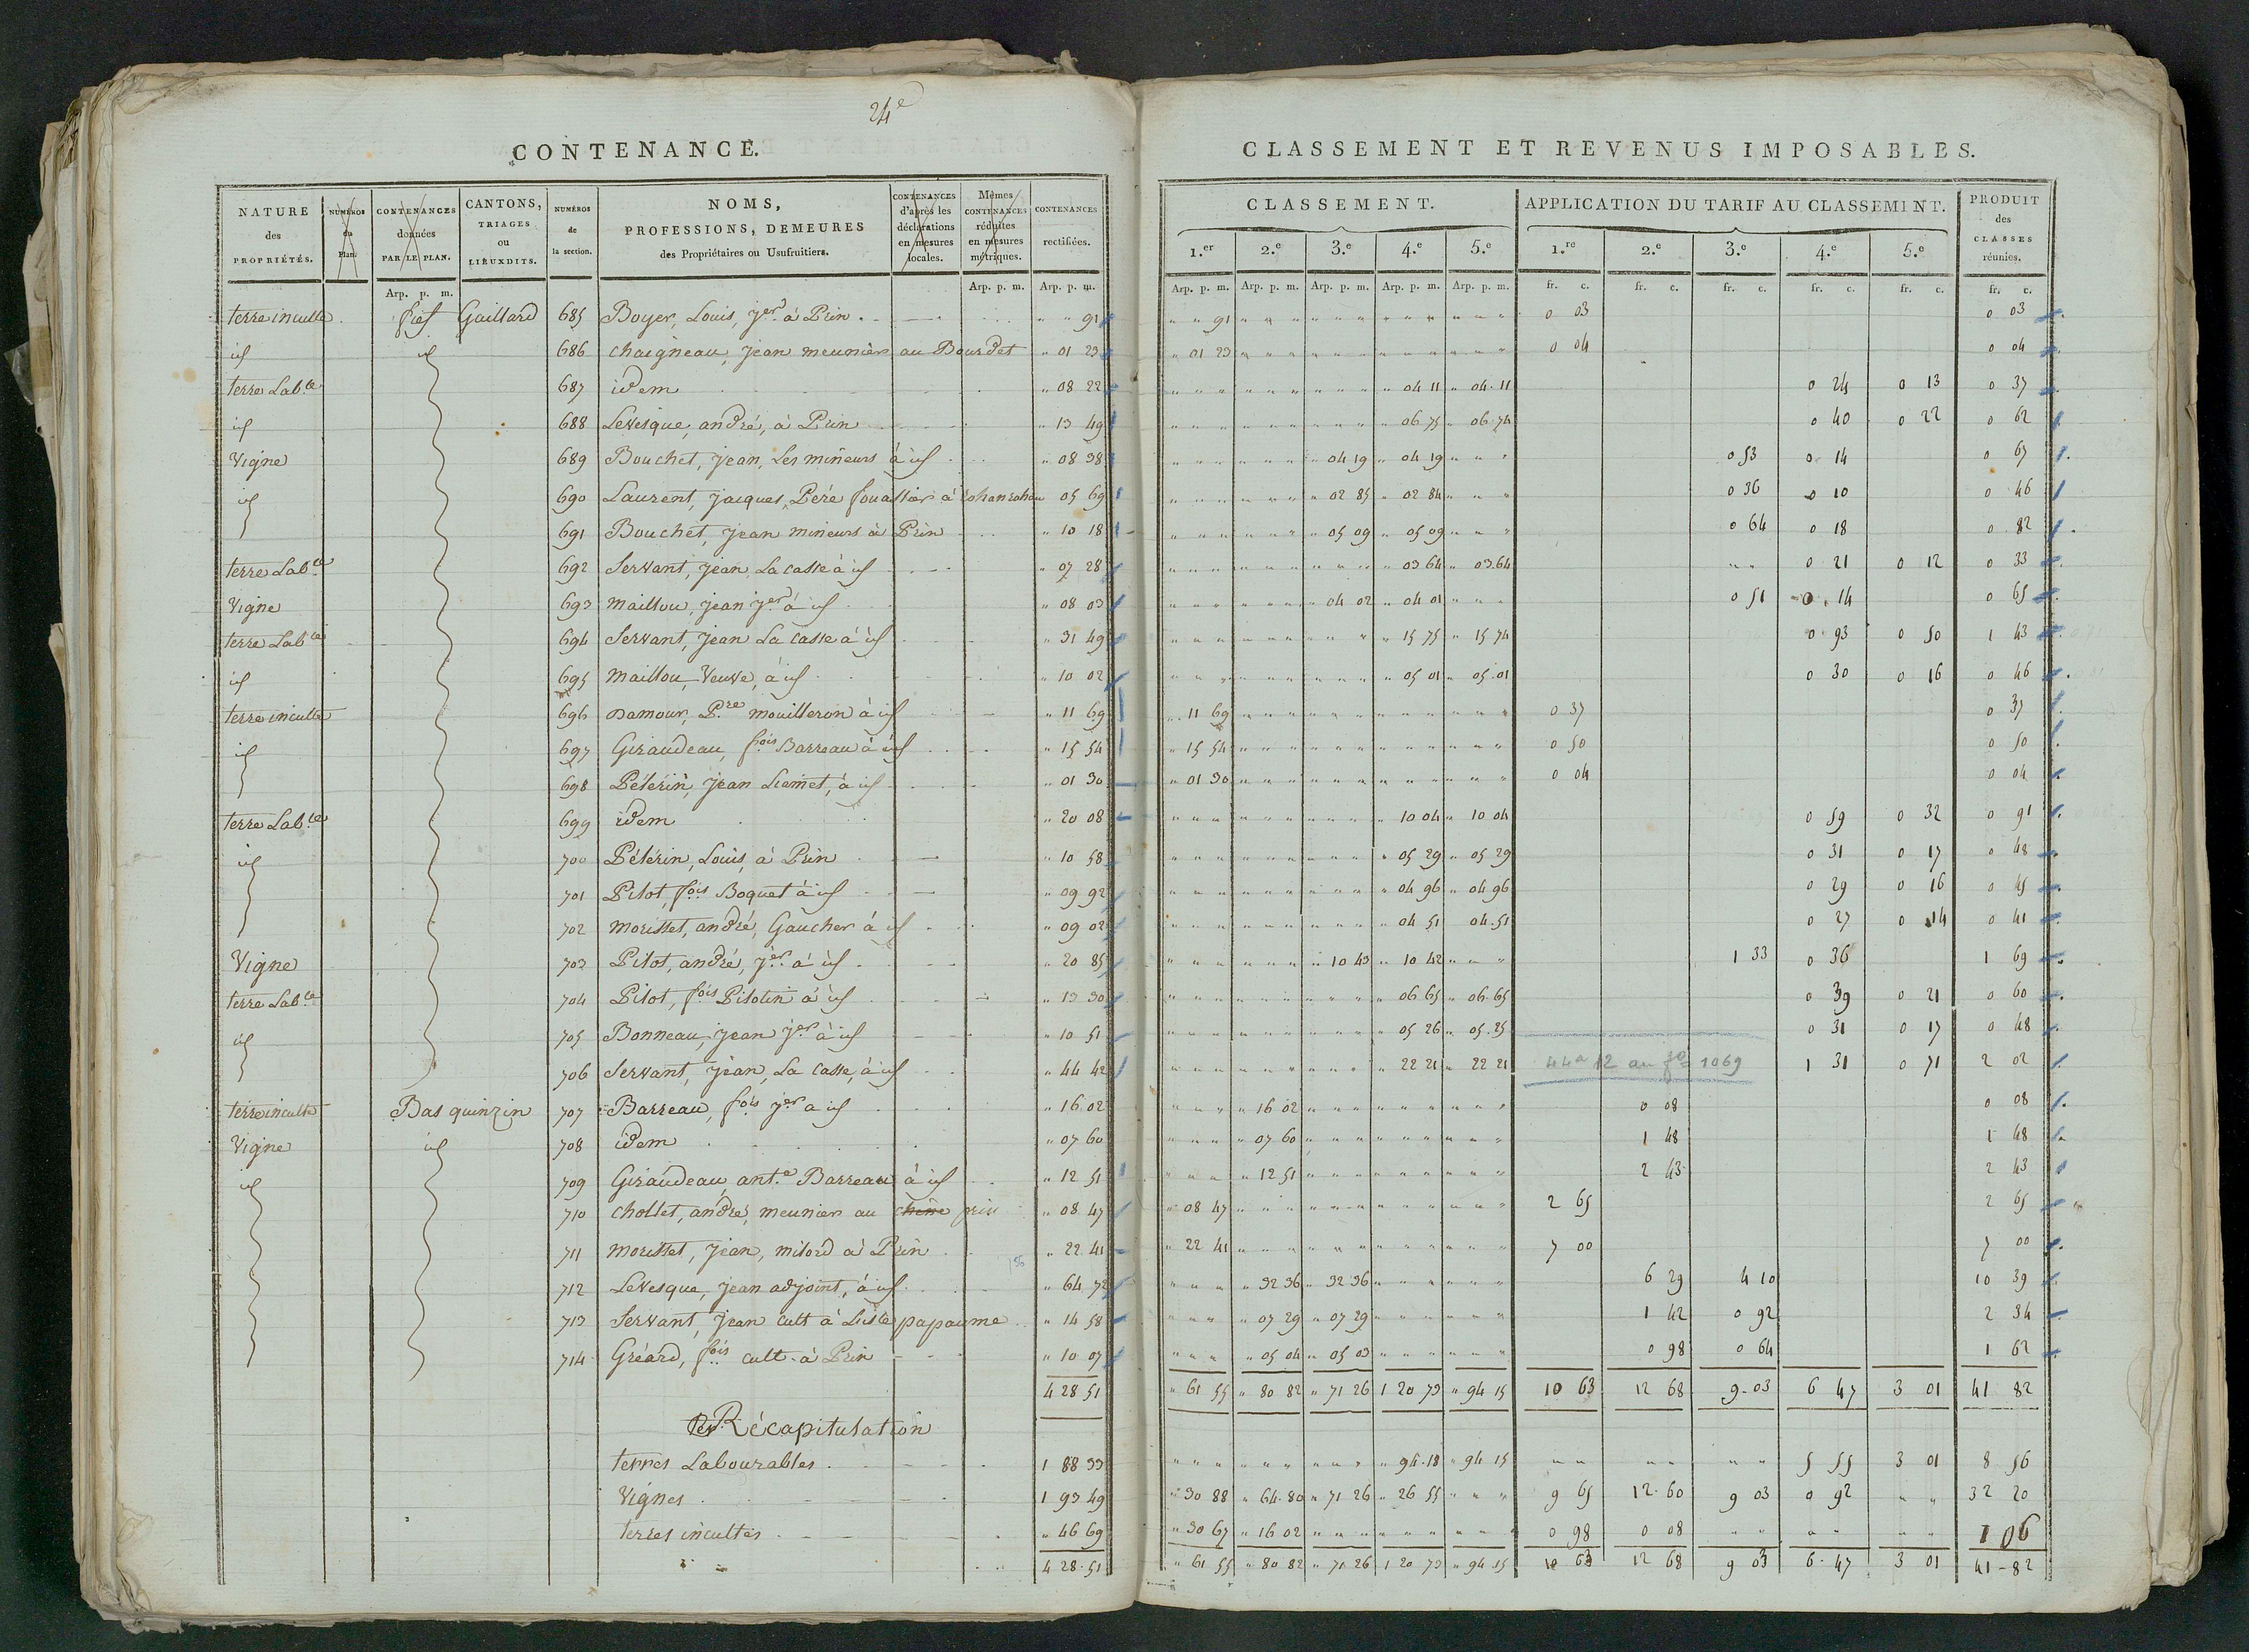 24e
CONTENANCE.
CLASSEMENT ET REVENUS IMPOSABLES.
NATURE des PROPRIÉTÉS. | NUMÉROS du Plan. | CONTENANCES données PAR LE PLAN. | CANTONS, TRIAGES ou LIEUXDITS. | NUMÉROS de la section. | NOMS, PROFESSIONS, DEMEURES des Propriétaires ou Usufruitiers. | CONTENANCES d'après les déclarations en mesures locales. | Mêmes CONTENANCES réduites en mesures métriques. | CONTENANCES rectifiées. | CLASSEMENT. | APPLICATION DU TARIF AU CLASSEMENT. | PRODUIT des CLASSES réunies.
1.er 2.e 3.e 4.e 5.e 1.re 2.e 3.e 4.e 5.e
Arp. p. m. Arp. p. m. Arp. p. m. Arp. p. m. Arp. p. m. Arp. p. m. Arp. p. m. Arp. p. m. fr. c. fr. c. fr. c. fr. c. fr. c. fr. c.
terre inculte fief Gaillard 685 Boyer, Louis, jer à Prin " " 91 " " 91 0 03 0 03
id id 686 Chaigneau, jean meunier au Bourdet " 01 23 " 01 23 0 04 0 04
terre Labce 687 idem " 08 22 " 04 11 " 04 11 0 24 0 13 0 37
id 688 Levesque, andré, à Prin " 13 49 " 06 75 " 06 74 0 40 0 22 0 62
Vigne 689 Bouchet, jean, Les mineurs à id " 08 38 " 04 19 " 04 19 0 53 0 14 0 67
id 690 Laurent, jacques, Père fouassier à " 05 69 " 02 85 " 02 84 0 36 0 10 0 46
691 Bouchet, jean mineurs à Prin " 10 18 " 05 09 " 05 09 0 64 0 18 0 82
terre Labce 692 Servant, jean, La casse à id " 07 28 " 03 64 " 03 64 0 21 0 12 0 33
Vigne 693 Maillou, jean jer à id " 08 03 " 04 02 " 04 01 0 51 0 14 0 65
terre Labce 694 Servant, jean La casse à id " 31 49 " 15 75 " 15 74 0 93 0 50 1 43
id 695 Maillou, Veuve, à id " 10 02 " 05 01 " 05 01 0 30 0 16 0 46
terre inculte 696 Damour, Pre mouilleron à id " 11 69 " 11 69 0 37 0 37
id 697 Giraudeau, fois Barreau à id " 15 54 " 15 54 0 50 0 50
698 Pélerin, jean Liamet, à id " 01 30 " 01 30 0 04 0 04
terre Labce 699 idem " 20 08 " 10 04 " 10 04 0 59 0 32 0 91
id 700 Pélérin, Louis, à Prin " 10 58 " 05 29 " 05 29 0 31 0 17 0 48
701 Pilot, fois Boquet à id " 09 92 " 04 96 " 04 96 0 29 0 16 0 45
702 Morisset, andré, Gaucher à id " 09 02 " 04 51 04 51 0 27 0 14 0 41
Vigne 703 Pilot, andré, jer à id " 20 85 " 10 43 " 10 42 1 33 0 36 1 69
terre Labce 704 Pilot, fois Pilotin à id " 13 30 " 06 65 " 06 65 0 39 0 21 0 60
id 705 Bonneau, jean jer à id " 10 51 " 05 26 " 05 25 0 31 0 17 0 48
706 Servant, jean, La casse, à id " 44 42 " 22 21 " 22 21 44a 12 au fo 1069 1 31 0 71 2 02
terre inculte Bas quinzin 707 Barreau, fois jer à id " 16 02 " 16 02 0 08 0 08
Vigne id 708 idem " 07 60 " 07 60 1 48 1 48
id 709 Giraudeau, ant.e Barreau à id " 12 51 " 12 51 2 43 2 43
710 Chollet, andré, meunier au chêne prin " 08 47 " 08 47 2 65 2 65
711 Morisset, jean, milord à Prin " 22 41 " 22 41 7 00 7 00
712 Levesque, jean adjoint, à id " 64 72 " 32 36 " 32 36 6 29 4 10 10 39
713 Servant, jean cult à Liste papaume " 14 58 " 07 29 " 07 29 1 42 0 92 2 34
714 Gréard, fois cult. à Prin " 10 07 " 05 04 " 05 03 0 98 0 64 1 62
4 28 51 " 61 55 " 80 82 " 71 26 1 20 73 " 94 15 10 63 12 68 9 03 6 47 3 01 41 82
Récapitulation
terres Labourables 1 88 33 " 94 18 " 94 15 5 55 3 01 8 56
Vignes 1 93 49 " 30 88 " 64 80 " 71 26 " 26 55 9 65 12 60 9 03 0 92 32 20
terres incultes " 46 69 " 30 67 " 16 02 0 98 0 08 1 06
4 28 51 " 61 55 " 80 82 " 71 26 1 20 73 " 94 15 10 63 12 68 9 03 6 47 3 01 41 82